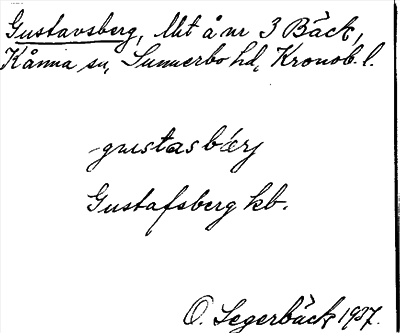 Gustavsberg, lht å nr 3 Bäck,
Kånna sn, Sunnerbo hd, Kronob. l.
gustasbærj
Gustafsberg kb.
O. Segerbäck 1937.